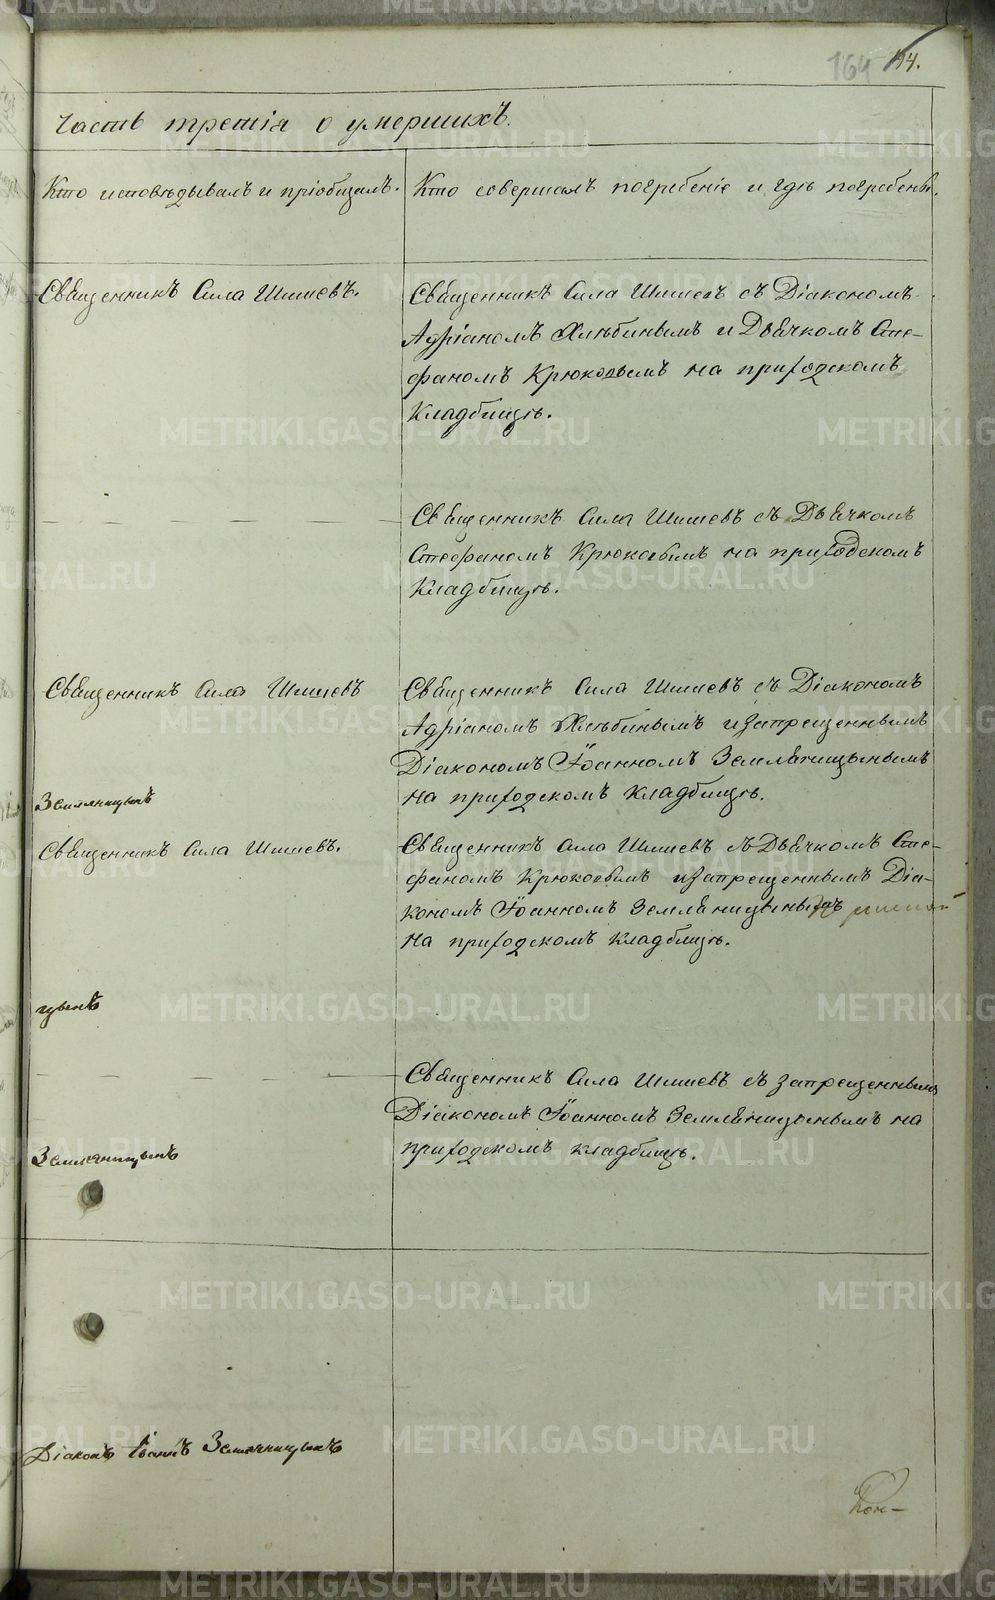 164 194.
Часть третія о умершихъ.
Кто исповѣдывалъ и пріобщалъ.
Кто совершалъ погребеніе и гдѣ погребены.
Священникъ Сила Шишевъ.
Священникъ Сила Шишевъ съ Діакономъ
Адріаномъ Хлѣбинымъ и Дьячкомъ Сте-
фаномъ Крюковымъ на приходскомъ
кладбищѣ.
Священникъ Сила Шишевъ съ Дьячкомъ
Стефаномъ Крюковымъ на приходскомъ
кладбищѣ.
Священникъ Сила Шишевъ
Священникъ Сила Шишевъ съ Діакономъ
Адріаномъ Хлѣбинымъ и запрещеннымъ
Діакономъ Іоанномъ Земляницынымъ
на приходскомъ кладбищѣ.
Земляницынъ
Священникъ Сила Шишевъ.
Священникъ Сила Шишевъ съ Дьячкомъ Сте-
фаномъ Крюковымъ и запрещеннымъ Діа-
кономъ Іоанномъ Земляницынымъ
на приходскомъ кладбищѣ.
цынъ
Священникъ Сила Шишевъ съ запрещеннымъ
Діакономъ Іоанномъ Земляницынымъ на
приходскомъ кладбищѣ.
Земляницынъ
Діаконъ Іоаннъ Земляницынъ
METRIKI.GASO-URAL.RU